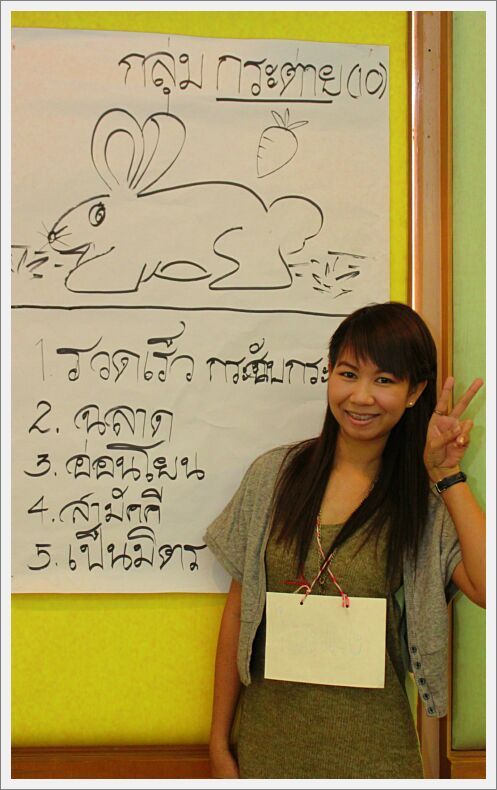 กลุ่ม กระต่าย (10)
1. รวดเร็ว กระฉับกระ
2. ฉลาด
3. อ่อนโยน
4. สามัคคี
5. เป็นมิตร